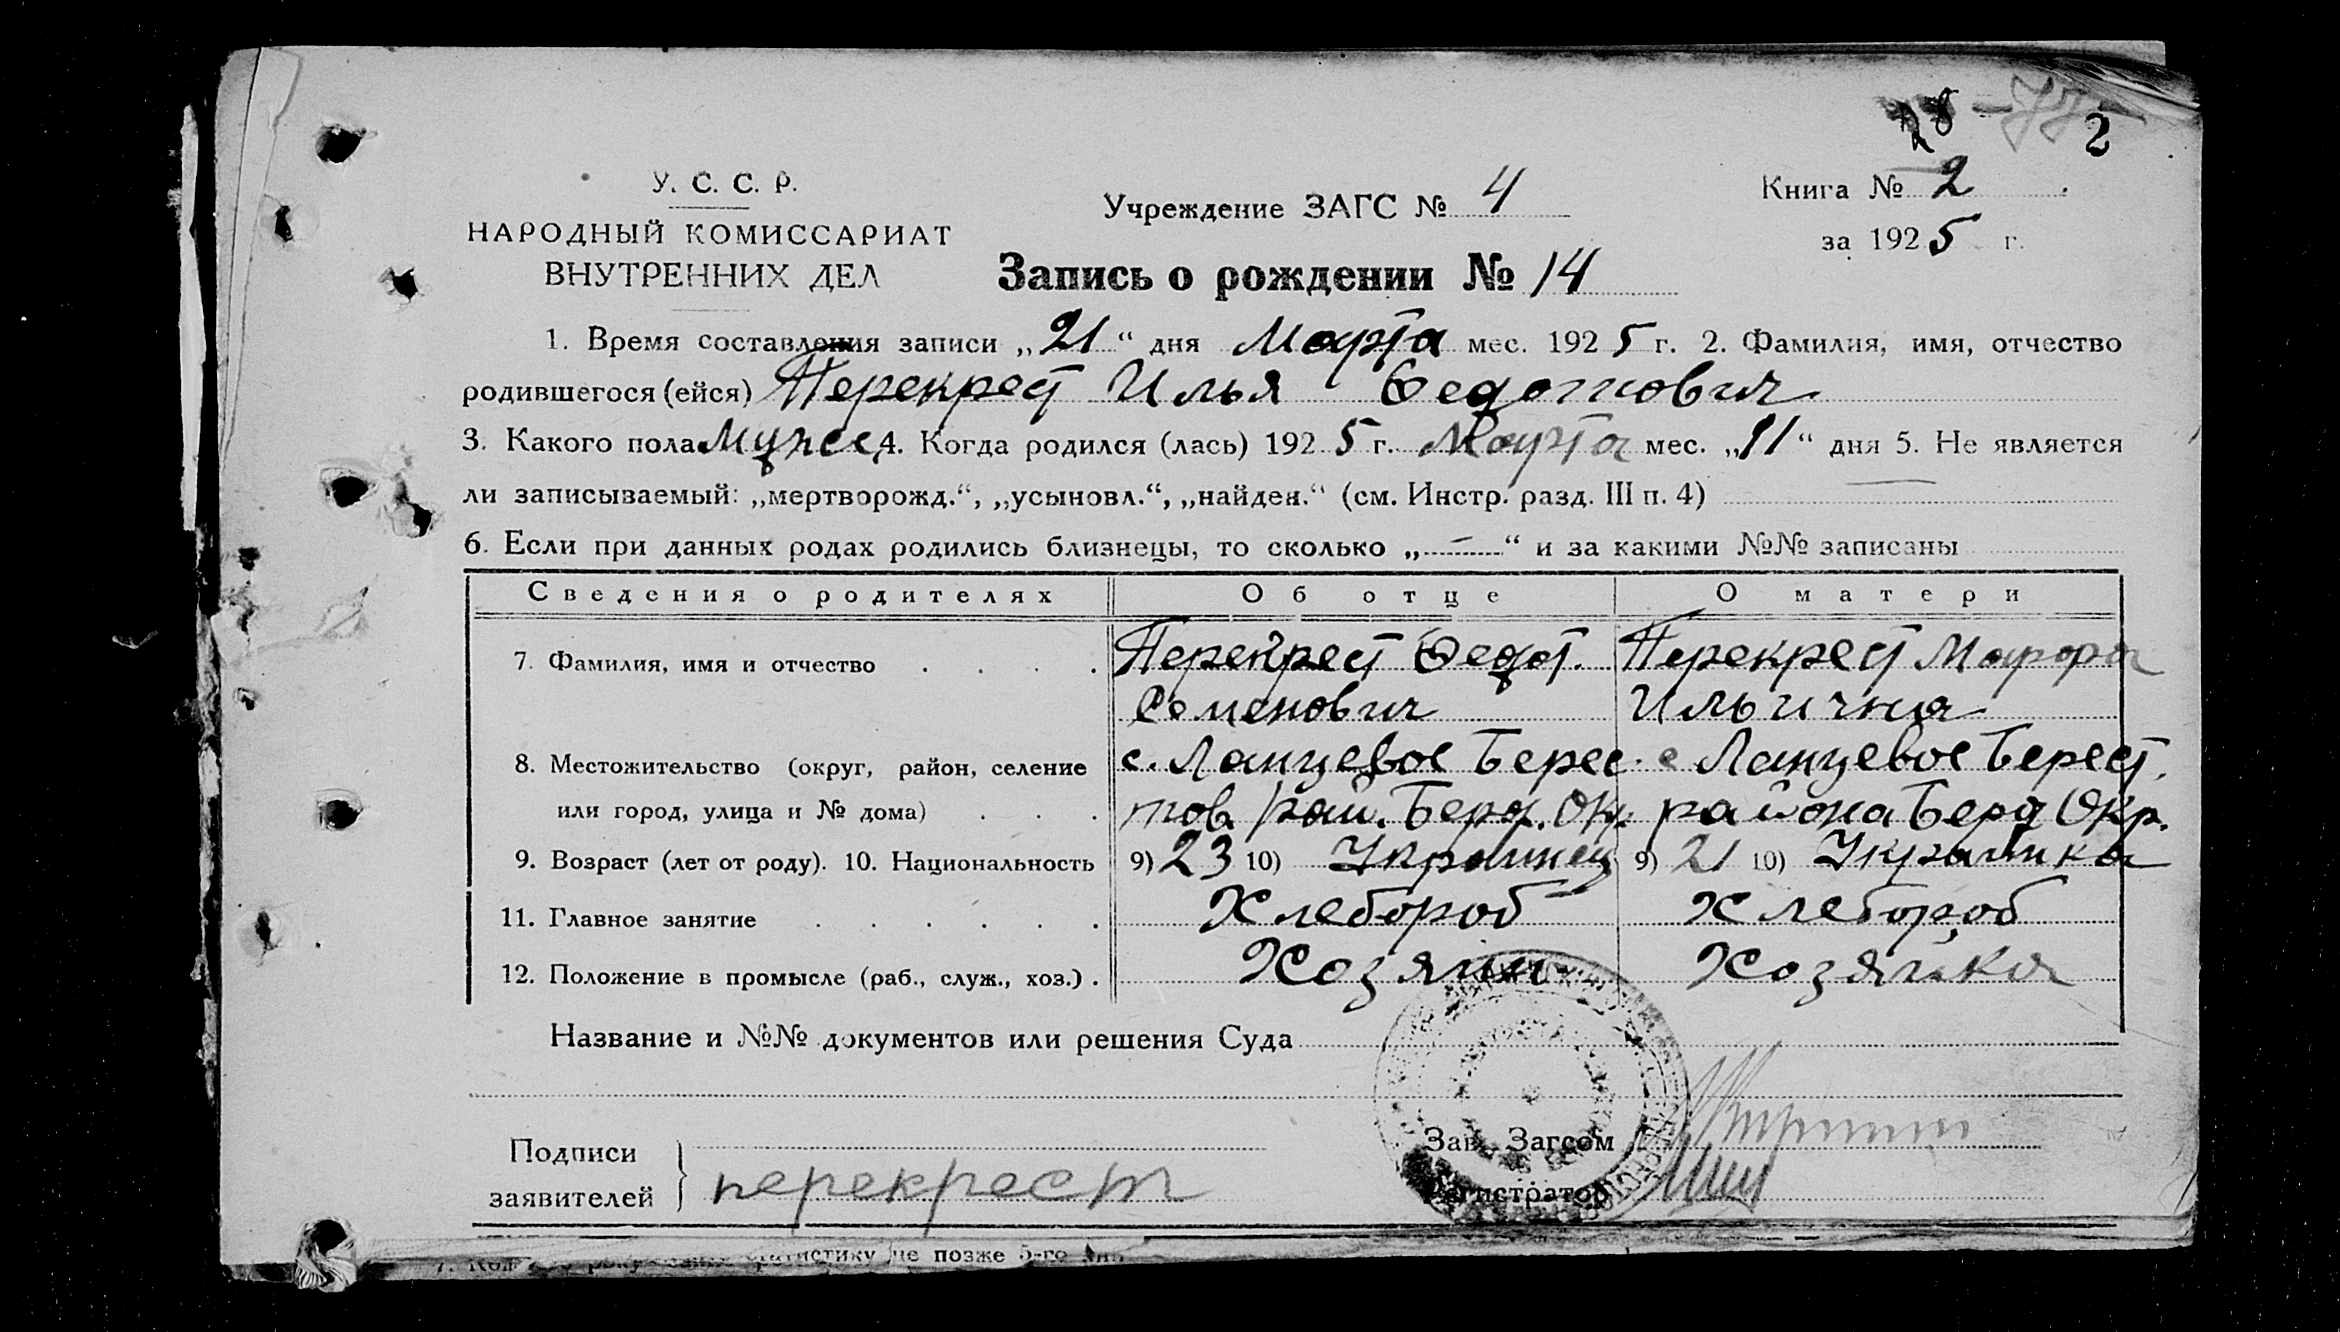 28 -77- 2
У. С. С. Р.
Учреждение ЗАГС № 4
Книга № 2
НАРОДНЫЙ КОМИССАРИАТ
за 1925 г.
ВНУТРЕННИХ ДЕЛ
Запись о рождении № 14
1. Время составления записи „21“ дня Марта мес. 1925 г. 2. Фамилия, имя, отчество
родившегося (ейся) Перекрест Илья Федотович
3. Какого пола Мужс. 4. Когда родился (лась) 1925 г. Марта мес. „11“ дня 5. Не является
ли записываемый: „мертворожд.“, „усыновл.“, „найден.“ (см. Инстр. разд. III п. 4) —
6. Если при данных родах родились близнецы, то сколько „—“ и за какими №№ записаны
Сведения о родителях Об отце О матери
7. Фамилия, имя и отчество . . . . Перекрест Федот. Перекрест Марфа
Семенович Ильична
8. Местожительство (округ, район, селение с. Ланцевое Берес- с Ланцевое Берест.
или город, улица и № дома) . . . тов. Рай. Берд. Окр. района Берд Окр.
9. Возраст (лет от роду). 10. Национальность 9) 23 10) Украинец 9) 21 10) Украинка
11. Главное занятие . . . . . . Хлебороб Хлебороб
12. Положение в промысле (раб., служ., хоз.) . Хозяин Хозяйка
Название и №№ документов или решения Суда
Подписи
Зав. Загсом
заявителей } перекрест
Регистратор
не позже 5-го